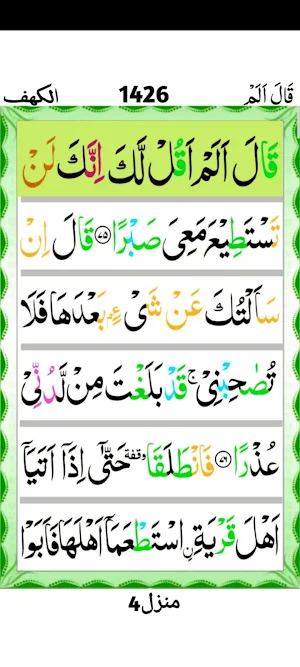 الكهف 1426 قَالَ اَلَمْ
قَالَ اَلَمْ اَقُلْ لَّكَ اِنَّكَ لَنْ
تَسْتَطِیْعَ مَعِیَ صَبْرًا ﴿۷۵﴾ قَالَ اِنْ
سَاَلْتُكَ عَنْ شَیْءٍۭ بَعْدَهَا فَلَا
تُصٰحِبْنِیْ ۚ قَدْ بَلَغْتَ مِنْ لَّدُنِّیْ
عُذْرًا ﴿۷۶﴾ فَانْطَلَقَا وقفة حَتّٰۤی اِذَاۤ اَتَیَاۤ
اَهْلَ قَرْیَةِ ِ۟اسْتَطْعَمَاۤ اَهْلَهَا فَاَبَوْا
منزل4